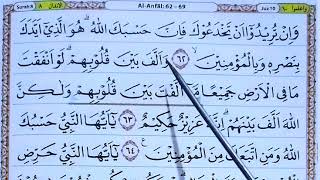 Surah 8 الانفال Al-Anfāl: 62 - 69 Juz 10 واعلموا ١٠
وَاِنْ يُّرِيْدُوْٓا اَنْ يَّخْدَعُوْكَ فَاِنَّ حَسْبَكَ اللّٰهُ ۗهُوَ الَّذِيْٓ اَيَّدَكَ
بِنَصْرِهٖ وَبِالْمُؤْمِنِيْنَ ۙ ٦٢ وَاَلَّفَ بَيْنَ قُلُوْبِهِمْ ۗ لَوْ اَنْفَقْتَ
مَا فِى الْاَرْضِ جَمِيْعًا مَّآ اَلَّفْتَ بَيْنَ قُلُوْبِهِمْ وَلٰكِنَّ
اللّٰهَ اَلَّفَ بَيْنَهُمْ ۗاِنَّهٗ عَزِيْزٌ حَكِيْمٌ ٦٣ يٰٓاَيُّهَا النَّبِيُّ حَسْبُكَ
اللّٰهُ وَمَنِ اتَّبَعَكَ مِنَ الْمُؤْمِنِيْنَ ٦٤ يٰٓاَيُّهَا النَّبِيُّ حَرِّضِ